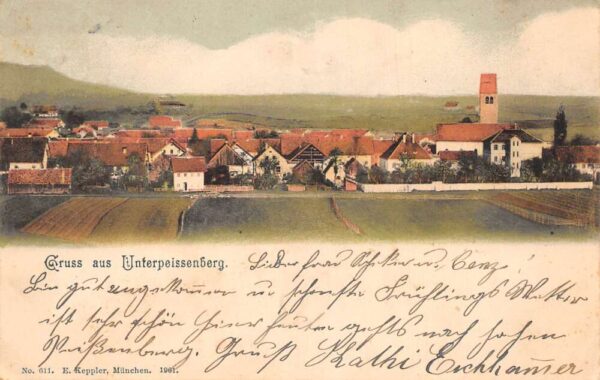 Gruss aus Unterpeissenberg.
Liebe Frau u. Cenz!
Bin gut angekommen u schönste Frühlings Wetter
ist sehr schön hier heute gehts nach hohen
Peißenberg. Gruß Kathi Eichhamer
No. 611. E. Keppler, München. 1901.